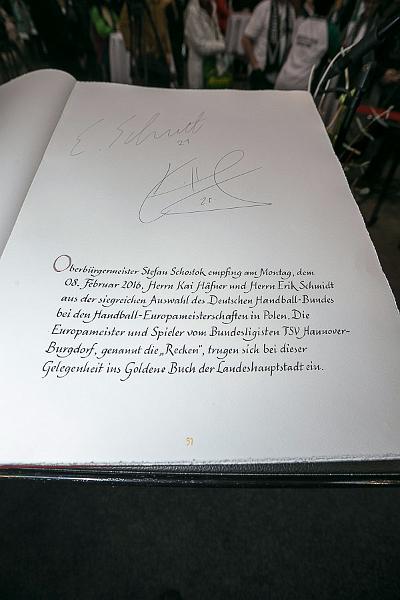 E. Schmidt
21
25
Oberbürgermeister Stefan Schostok empfing am Montag, dem
08. Februar 2016, Herrn Kai Häfner und Herrn Erik Schmidt
aus der siegreichen Auswahl des Deutschen Handball-Bundes
bei den Handball-Europameisterschaften in Polen. Die
Europameister und Spieler vom Bundesligisten TSV Hannover-
Burgdorf, genannt die „Recken“, trugen sich bei dieser
Gelegenheit ins Goldene Buch der Landeshauptstadt ein.
51